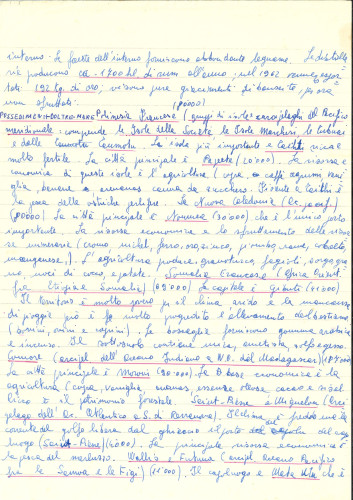 interno. Le foreste dell'interno forniscono abbondante legname. Le distille
rie producono ca. 1700 hl di rum all'anno; nel 1962 vennero espor
tati 192 kg. di oro; vi sono pure giacimenti di bauxite, per ora
non sfruttati.
POSSEDIMENTI OLTREMARE Polinesia Francese (gruppi di isole e arcipelaghi del Pacifico
meridionale: comprende le Isole della Società le Isole Marchesi le Tubuai
e delle Tuamotu. La isola più importante è Taiti ricca e
molto fertile. La città principale è Papete (20'000). La risorsa e
conomica di queste isole è l'agricoltura (copra, caffè, agrumi, vani
glia, banane, ananas canna da zucchero. Fiorente a Taithi è
la pesca delle ostriche perlifere. La Nuova Caledonia (Oc. pacif.)
La città principale è Noumea (30'000) che è l'unico porto
importante. La risorsa economica è lo sfruttamento delle risor
se minerarie (cromo nikel, ferro, magnesio, piombo, rame, cobalto,
manganese,). L'agricoltura produce: granoturco, fagioli, sorgo, a
noci di cocco, e patate. Somalia Francese (Africa Orient.
fra Etiopia e Somalia) La capitale è Gibuti
Il territorio è molto povero per il clima arido e la mancanza
di pioggie però è molto progredito l'allevamento del bestiame
(bovini, ovini e caprini). Le boscaglie forniscono gomma arabica
e incenso. Il sottosuolo contiene mica, ametista, solfo e gesso.
Comore (arcipel. dell'Oceano Indiano a N.O. del Madagascar)
La città principale è Moroni La base economica è la
agricoltura (copra, vaniglia, ananas, essenze oleose, cacao e sisal
Ricco è il patrimonio forestale. Saint-Pierre à Miquelon (Arci
pelago dell'Oc. Atlantico a S. di Terranova). Il clima è freddo ma la
corrente del golfo libera dal ghiaccio il porto del capo
luogo (Saint-Pierre) La principale risorsa economica è
la pesca del merluzzo. Wallis e Futuna (arcipel. Oceano Pacifico
fra le Samoa e le Figi) (11'000). Il capoluogo è Mata Utu che è